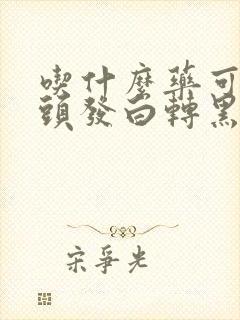 喫什麼藥可
頭發白轉黑
宋爭光